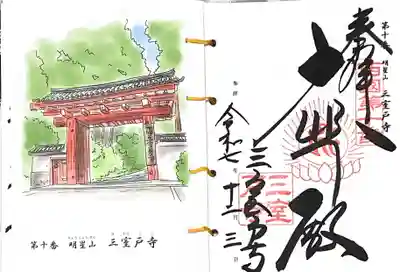 第十番 明星山 三室戸寺
第十番 明星山 三室戸寺
奉拝
殿
三室戸寺
令和七年十一月三日